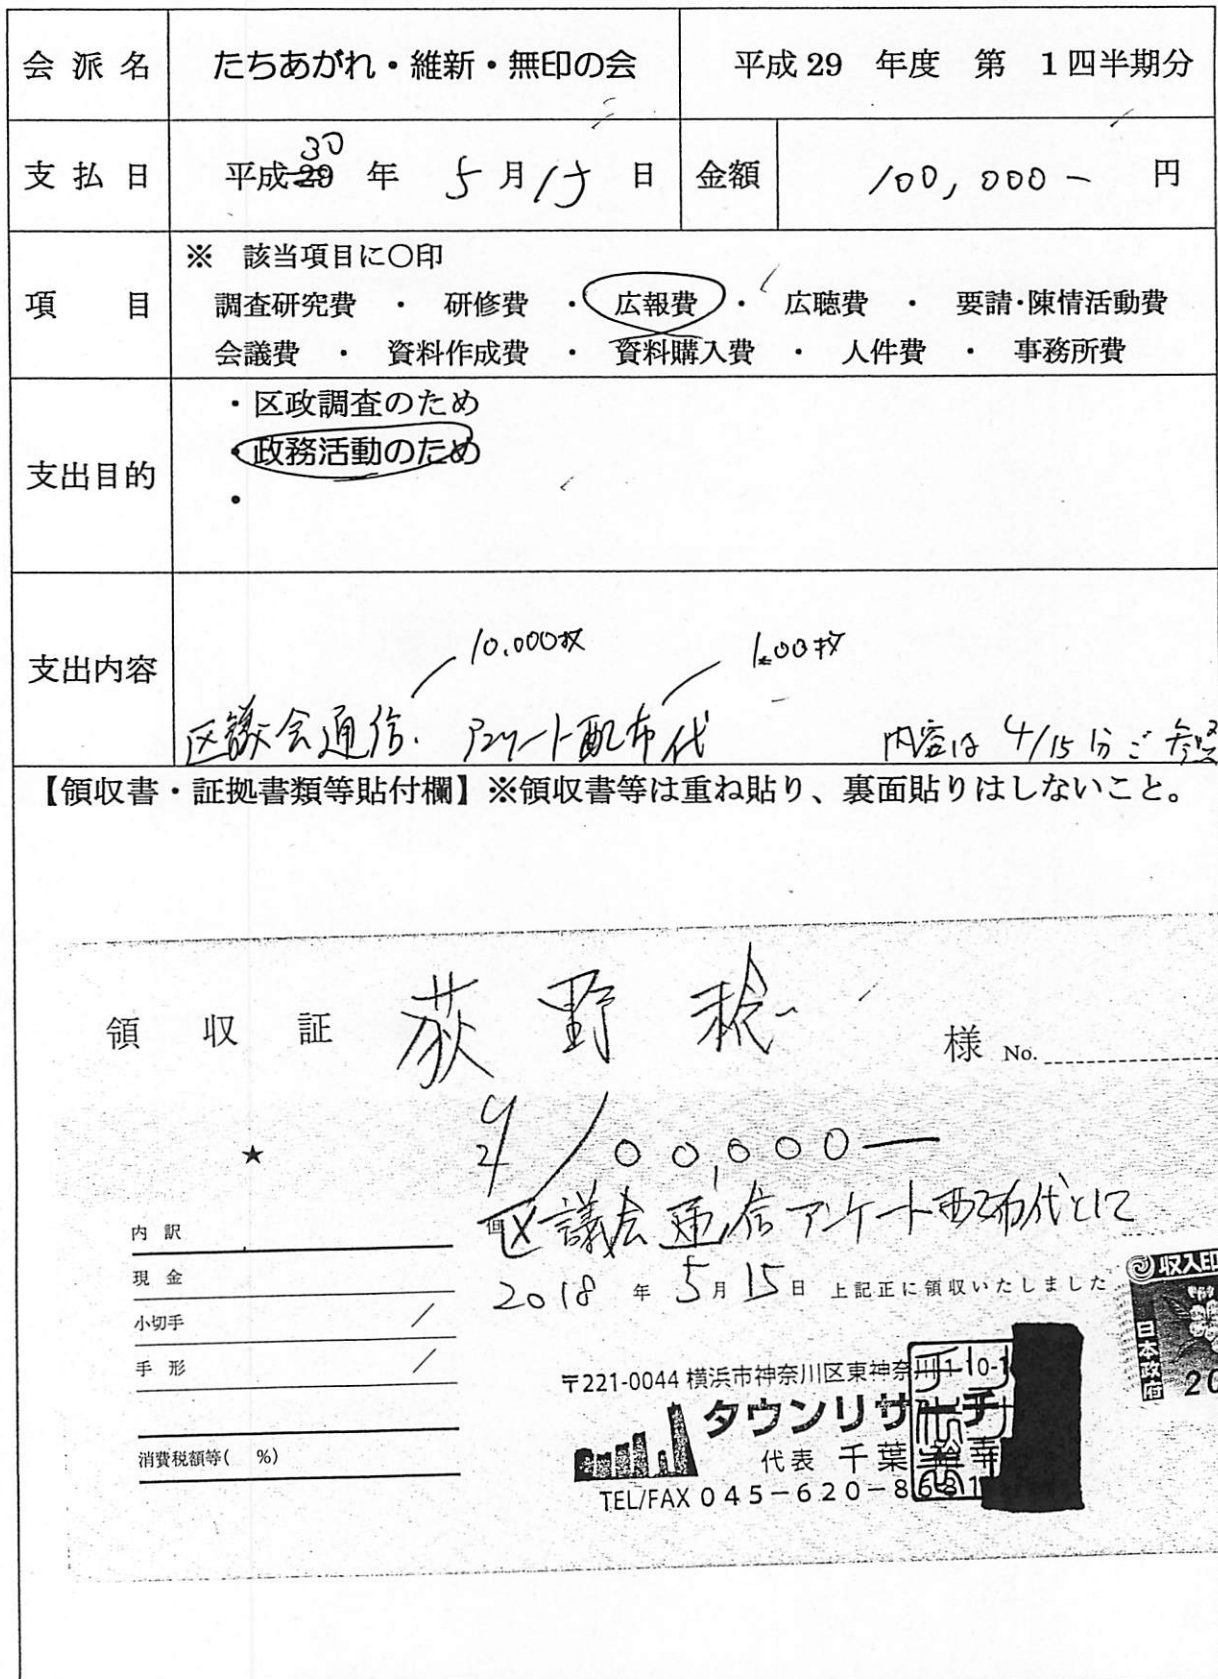 会派名 たちあがれ・維新・無印の会 平成29 年度 第 1四半期分
支払日 平成29 30 年 5月15 日 金額 100,000- 円
※ 該当項目に〇印
項 目 調査研究費 ・ 研修費 ・ 広報費 ・ 広聴費 ・ 要請・陳情活動費
会議費 ・ 資料作成費 ・ 資料購入費 ・ 人件費 ・ 事務所費
・区政調査のため
・政務活動のため
支出目的
・
10.000枚
支出内容
区議会通信. アンケート配布代 内容は 4/15分ご参照
【領収書・証拠書類等貼付欄】※領収書等は重ね貼り、裏面貼りはしないこと。
領 収 証 荻野稔 様 No.
★ ¥100,000-
内訳 但 区議会通信アンケート配布代として
現金 2018 年 5月15日 上記正に領収いたしました
小切手
手形
消費税額等( %)
収入印
日本政府
20
〒221-0044 横浜市神奈川区東神奈川1-10-1
タウンリサーチ
代表 千葉 幸
TEL/FAX 045-620-8631